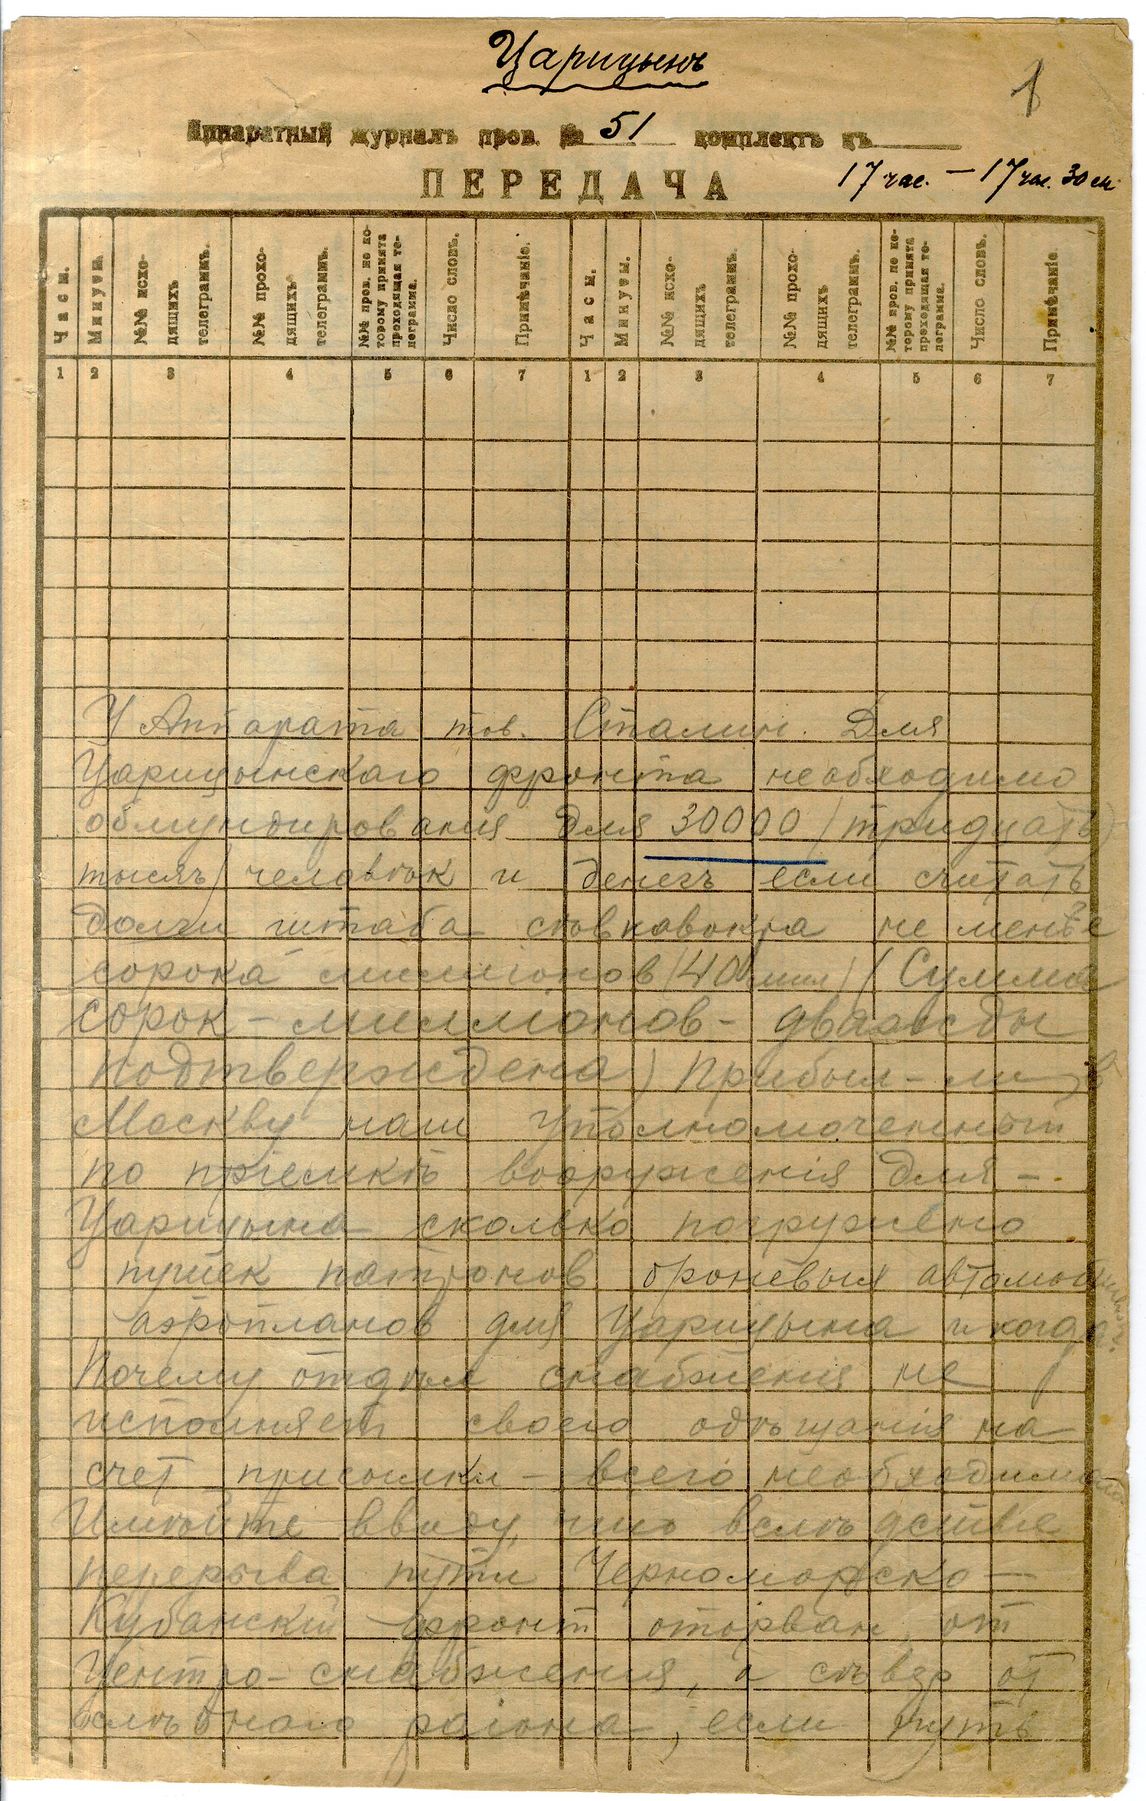 Царицынъ
1
Аппаратный журналъ пров. № 51 комплектъ къ
ПЕРЕДАЧА
17 час. – 17 час. 30 м
Часы.
Минуты.
№№ исходящихъ телеграммъ.
№№ проходящихъ телеграммъ.
№№ пров. по которому принята проходящая телеграмма.
Число словъ.
Примѣчаніе.
Часы.
Минуты.
№№ исходящихъ телеграммъ.
№№ проходящихъ телеграммъ.
№№ пров. по которому принята проходящая телеграмма.
Число словъ.
Примѣчаніе.
1 2 3 4 5 6 7 1 2 3 4 5 6 7
У Аппарата тов. Сталин. Для
Царицынскаго фронта необходимо
обмундирования для 30000 (тридцать
тысяч) человѣк и денег если считать
долги штаба сѣвкавокра не менѣе
сорока миллионов (40 мил) (Сумма
сорок – миллионов – дважды
подтверждена) Прибыл – ли в
Москву наш Уполномоченный
по пріемкѣ вооруженія для –
Царицына сколько погружено
пушек патронов броневых автомобилей
аэропланов для Царицына и когда.
Почему отдѣл снабженія не
исполняет своего обѣщанія на
счет присылки – всего необходимаго.
Имѣйте ввиду, что вслѣдствіе
перерыва пути Черноморско –
Кубанскій фронт оторван от
Центро – снабжения, а сѣвер от
хлѣбного района, если путь